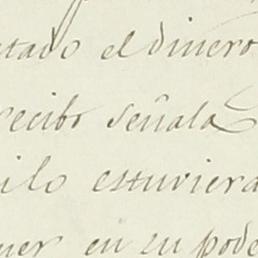 tado el dinero
recibo señala
ilo estuviera
uer en su pode